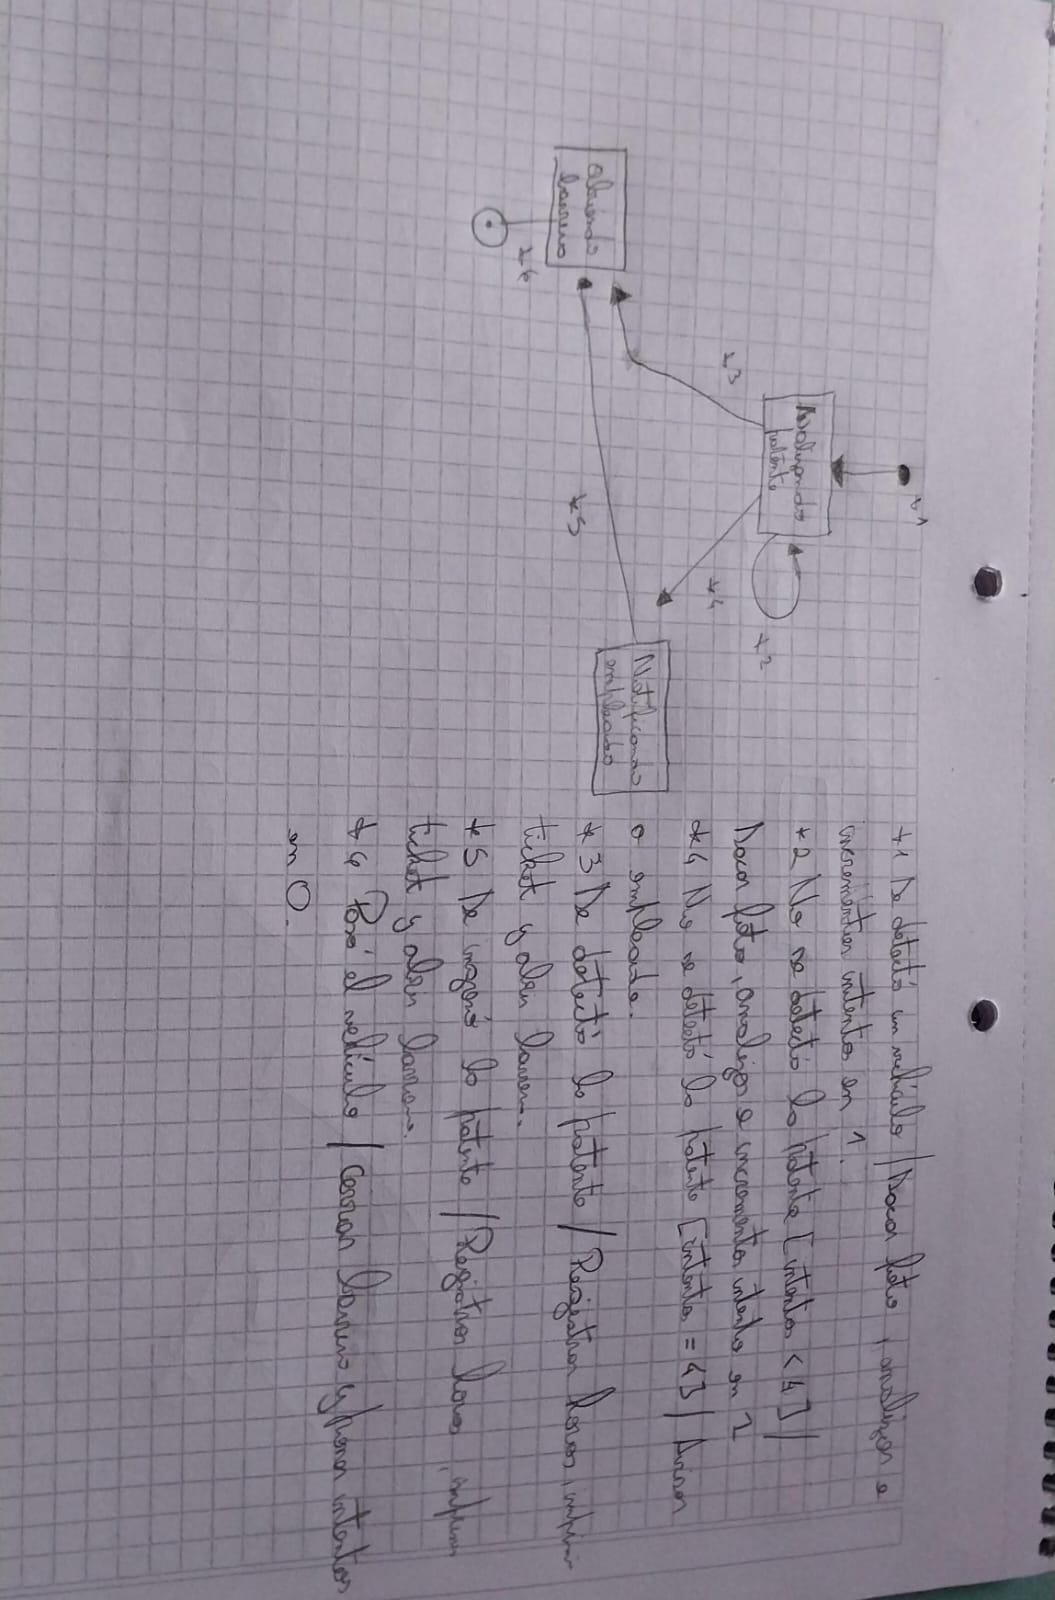 *1
Analizando
patente
*2
*3
*4
Notificando
empleado
*5
abriendo
barrera
*6
*1 Se detectó un vehículo / Sacar foto, analizar e
incrementar intento en 1.
*2 No se detectó la patente [intentos < 4] /
Sacar foto, analizar e incrementar intento en 1
*4 No se detectó la patente [intentos = 4] / Avisar
a empleado.
*3 Se detectó la patente / Registrar hora, imprimir
ticket y abrir barrera.
*5 Se ingresó la patente / Registrar hora, imprimir
ticket y abrir barrera.
*6 Pasó el vehículo / Cerrar barrera y poner intentos
en 0.